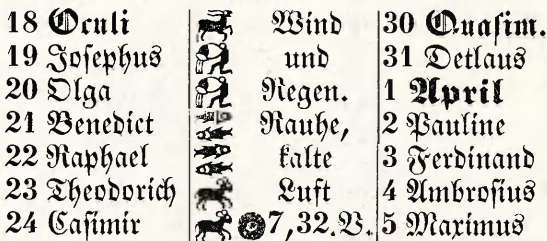 18 Oculi Wind 30 Quasim.
19 Josephus und 31 Detlaus
20 Olga Regen. 1 April
21 Benedict Rauhe, 2 Pauline
22 Raphael kalte 3 Ferdinand
23 Theodorich Luft 4 Ambrosius
24 Casimir 7,32.V. 5 Maximus